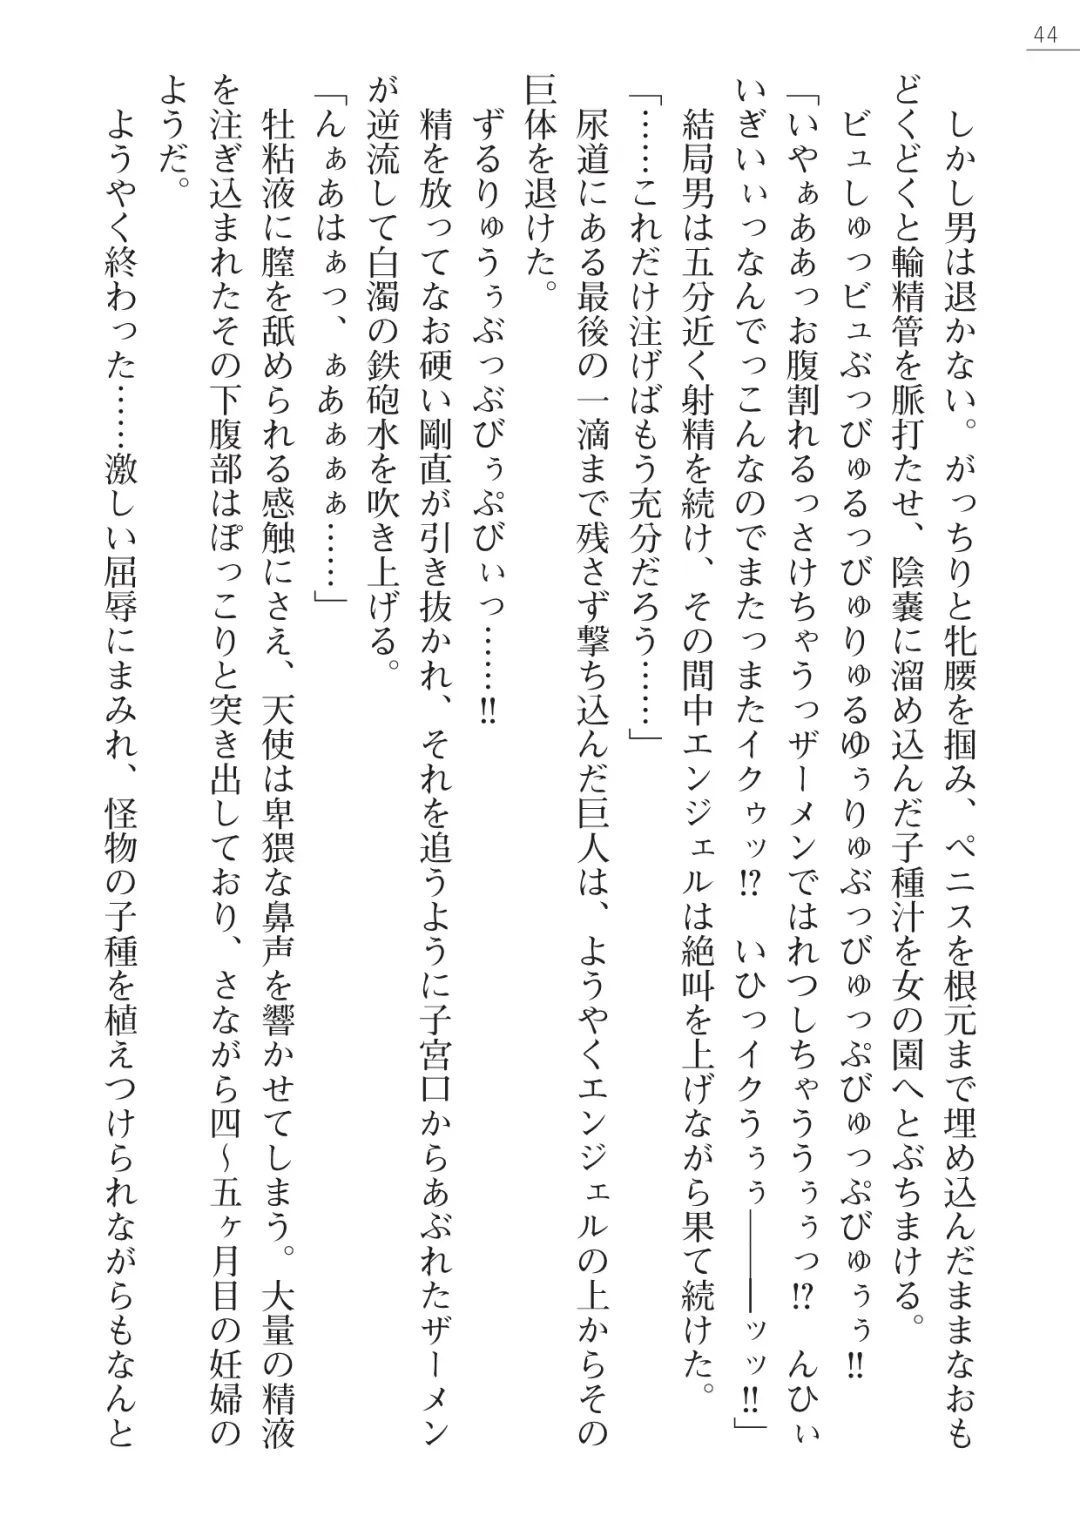 44
しかし男は退かない。がっちりと牝腰を掴み、ペニスを根元まで埋め込んだままなおも
どくどくと輸精管を脈打たせ、陰嚢に溜め込んだ子種汁を女の園へとぶちまける。
ビュしゅっビュぶっびゅるっびゅりゅるゆぅりゅぶっびゅっぷびゅっぷびゅぅぅ‼
「いやぁああっお腹割れるっさけちゃうっザーメンではれつしちゃううぅぅっ⁉　んひぃ
いぎいぃっなんでっこんなのでまたっまたイクゥッ⁉　いひっイクうぅぅ――――ッッ‼」
結局男は五分近く射精を続け、その間中エンジェルは絶叫を上げながら果て続けた。
「……これだけ注げばもう充分だろう……」
尿道にある最後の一滴まで残さず撃ち込んだ巨人は、ようやくエンジェルの上からその
巨体を退けた。
ずるりゅうぅぶっぶびぅぷびぃっ……‼
精を放ってなお硬い剛直が引き抜かれ、それを追うように子宮口からあぶれたザーメン
が逆流して白濁の鉄砲水を吹き上げる。
「んぁあはぁっ、ぁあぁぁぁ……」
牡粘液に膣を舐められる感触にさえ、天使は卑猥な鼻声を響かせてしまう。大量の精液
を注ぎ込まれたその下腹部はぽっこりと突き出しており、さながら四〜五ヶ月目の妊婦の
ようだ。
ようやく終わった……激しい屈辱にまみれ、怪物の子種を植えつけられながらもなんと